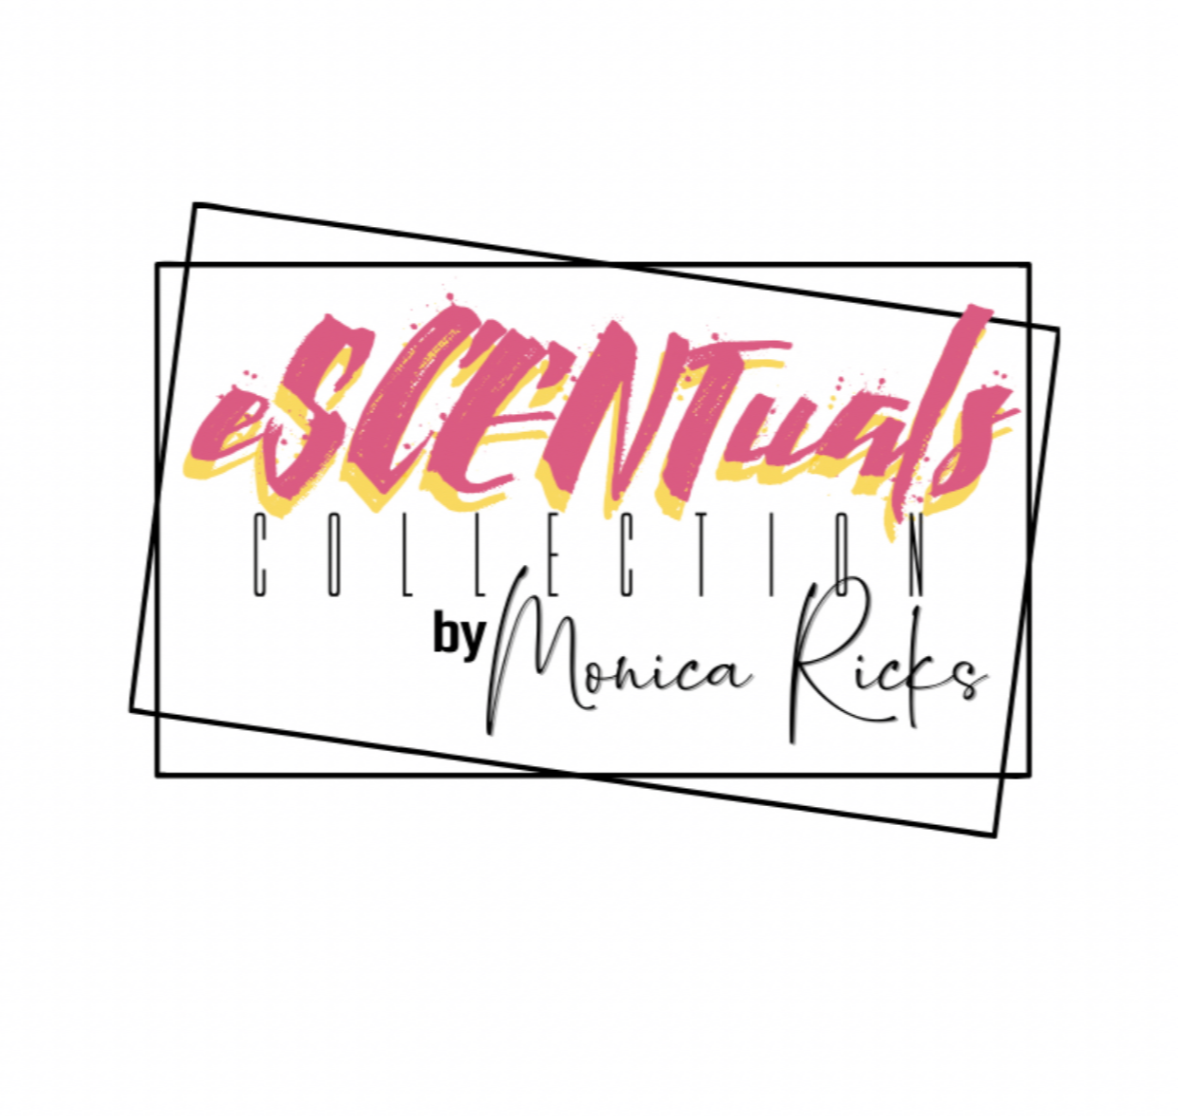 eSCENTuals
COLLECTION
by Monica Ricks